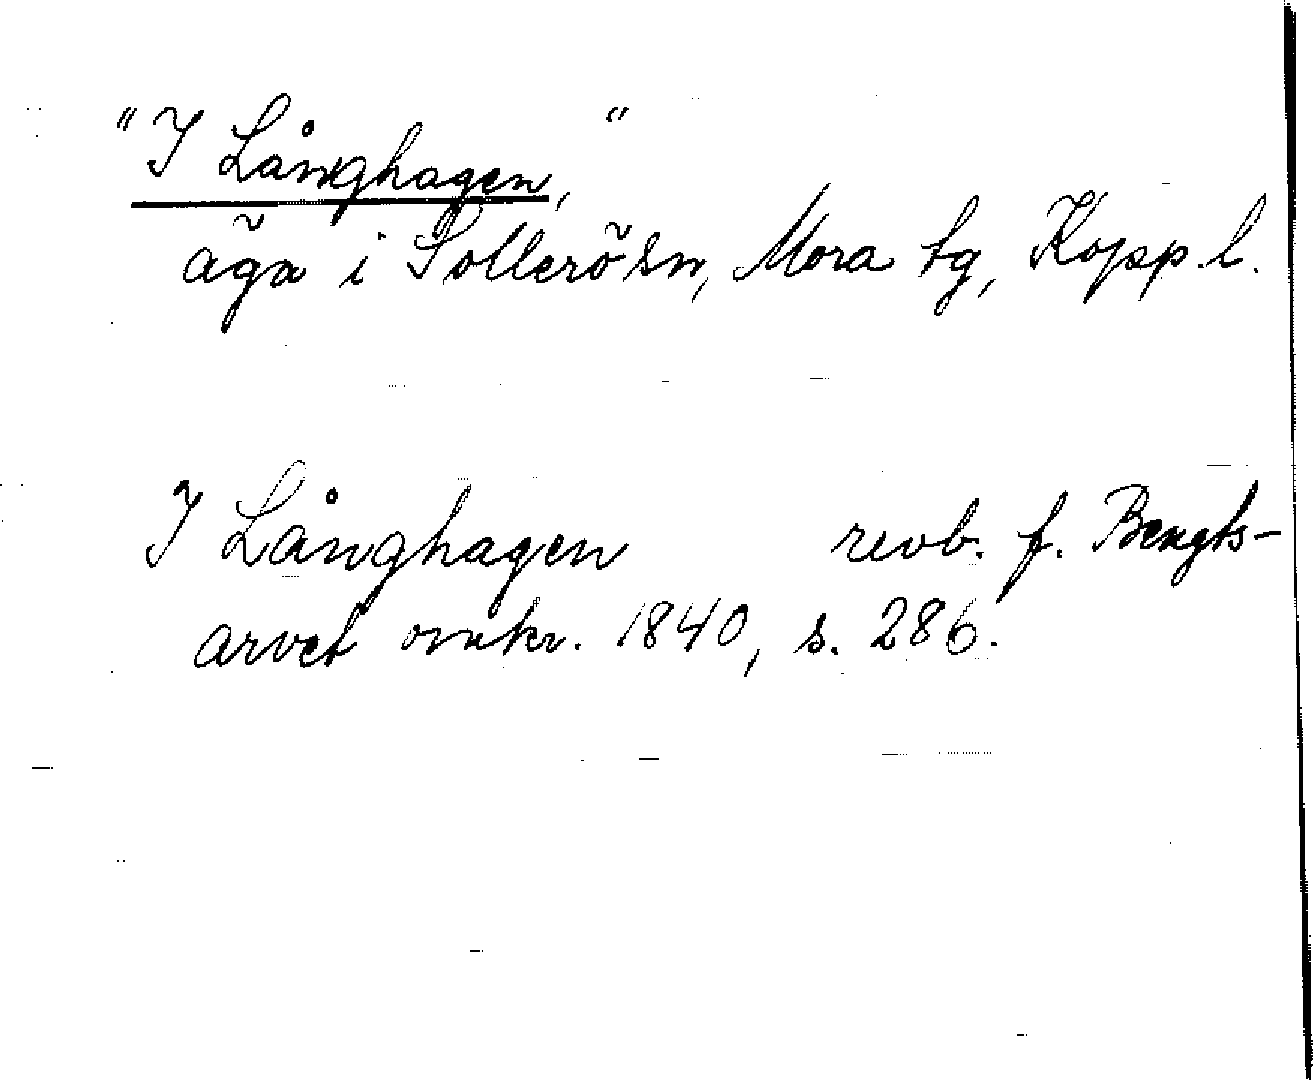 "I Långhagen,"
äga i Sollerö sn, Mora tg, Kopp. l.
I Långhagen revb. f. Bengts-
arvet omkr. 1840, s. 286.